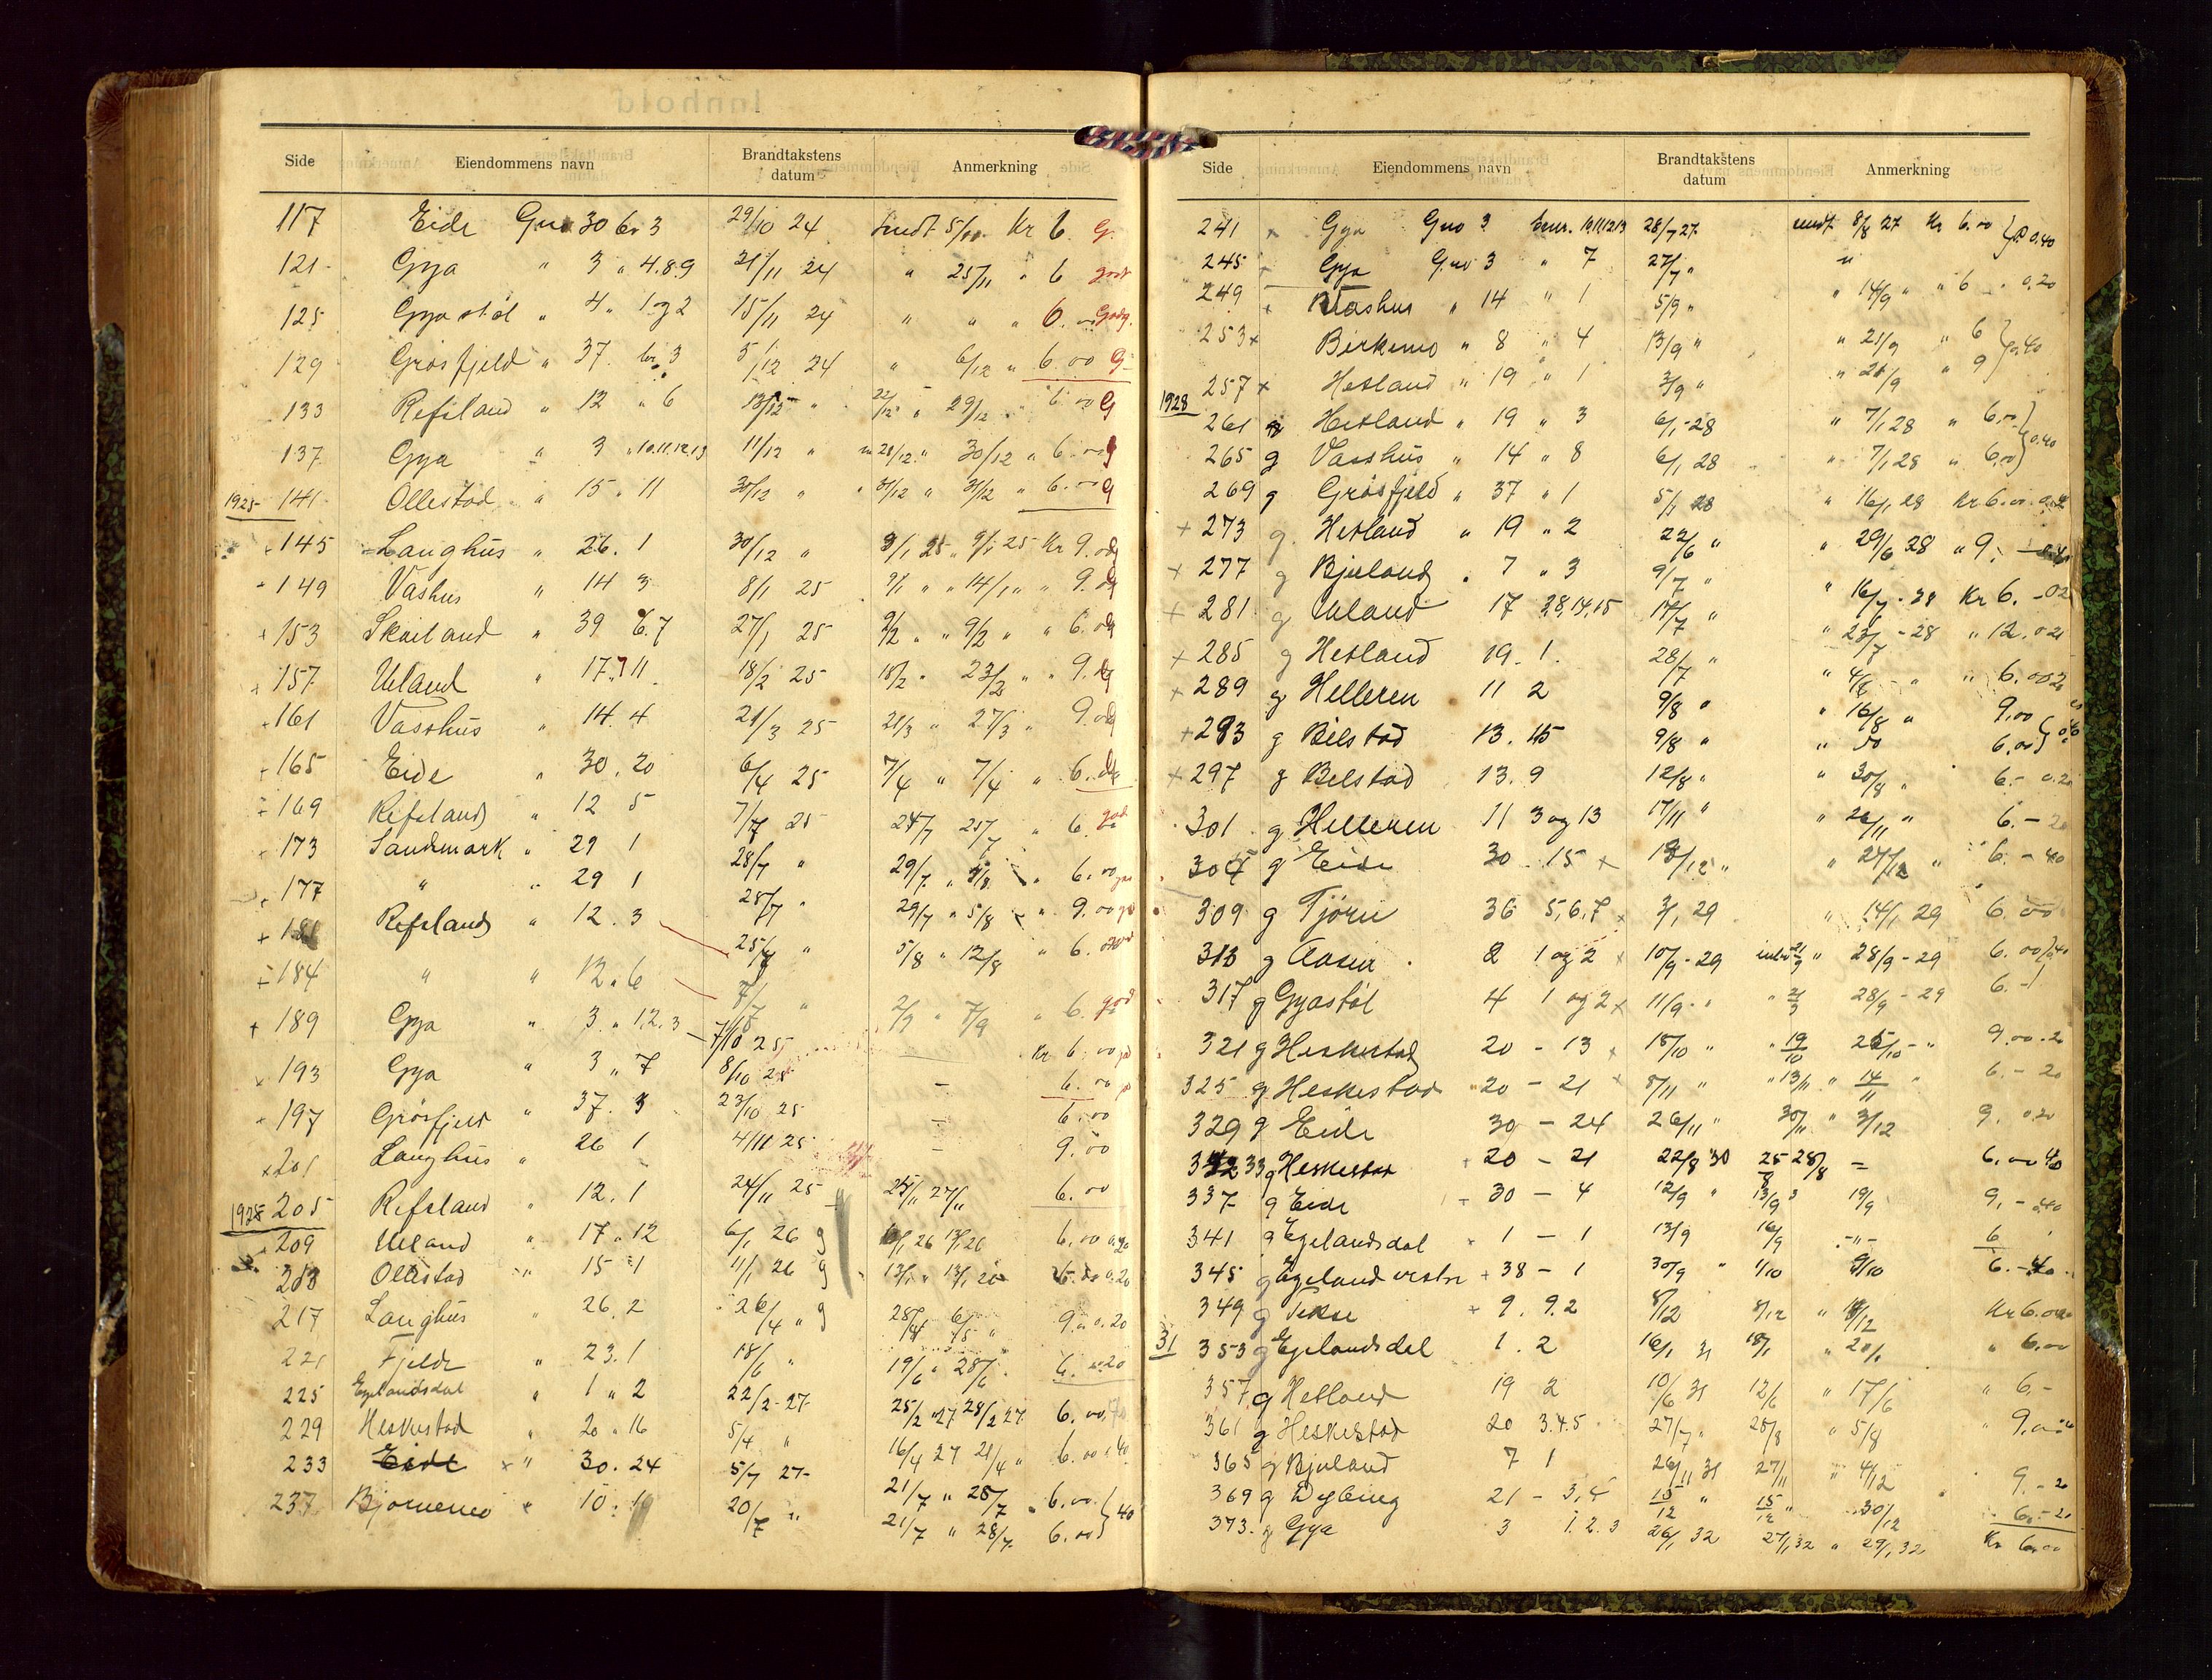 Side Eiendommens navn Brandtakstens datum Anmerkning
117 Eide Gno 30 br 3 29/10 24 Sendt 5/11 Kr 6. G.
121 Gya " 3 " 4.8.9 21/11 24 " 25/11 " 6 godt
125 Gyastøl " 4 " 1 og 2 15/11 24 " " " 6. Godg.
129 Grøsfjeld " 37. br. 3 5/12 24 " 6/12 " 6.00 G
133 Refsland " 12 " 6 13/12 " 22/12 " 29/12 6.00 G
137 Gya " 3 " 10.11.12.13 11/12 " 28/12 " 30/12 " 6.00 g
1925 141 Ollestad " 15 " 11 30/12 " 31/12 " 31/12 " 6.00 g
+ 145 Langhus " 26. 1 30/12 " 3/1 25 " 9/1 25 Kr 9.00 g
149 Vashus " 14 3 8/1 25 9/1 " " 14/1 " " 9.00 g
+ 153 Skailand " 39 6.7 27/1 25 9/2 " " 9/2 " " 6.00 g
+ 157 Ueland " 17. 11 18/2 25 18/2 " 23/2 " " 9.00 g
+ 161 Vasshus " 14. 4 21/3 25 21/3 " 27/3 " 9.00 g
+ 165 Eide " 30. 20 6/4 25 7/4 " 7/4 " 6.
+ 169 Refsland " 12 5 7/7 25 24/7 25/7 " 6. god
+ 173 Sandmark " 29 1 28/7 " 29/7 " 6.00
+ 177 " " 29 1 28/7 " 29/7 " 5/8 " 9.00
+ 181 Refsland " 12. 3 25/7 " 5/8 " 12/8 " 6. god
+ 184 " " 12. 6 7/7 " 2/9 " 7/9 " 6. god
+ 189 Gya " 3. " 1.2.3 7/10 25 Kr 6.00
x 193 Gya " 3 " 7 8/10 25 – 6.00
+ 197 Grøsfjeld " 37. 3 23/10 25 – 6.00
x 201 Langhus " 26 1 4/11 25 – 9.00
205 Refsland " 12. 1 24/11 25 25/11 27/11 6.00
209 Ueland " 17. 12 6/1 26 g 26 13/1 26 6.00 0.20
213 Ollestad " 15 1 11/1 26 g 13/1 " 13/1 26 6.00 0.20
217 Langhus " 26. 2 26/4 " g 28/4 6/5 " 9.00 0.20
221 Fjelde " 23. 1 18/6 " 19/6 " 28/6 6. 20
225 Egelandsdal " 1 " 2 22/2-27 25/2 27 28/2 27 6.00
229 Heskestad " 20 " 16 5/4 " 16/4 27 21/4 " 6.00 40
233 Eide x " 30. 24 5/7 27- 21/7 " 28/7 " 6.00
237 Bjørnemo " 10. 20/7 " 21/7 " 28/7 6.00 } 40
Side Eiendommens navn Brandtakstens datum Anmerkning
241 x Gya Gno 3 bnr. 10,11,12,13 28/7 27. sendt 8/8 27 Kr 6.00 } 0.40
245 + Gya Gno 3 " 7 27/7 " "
249 x Vashus " 14 " 1 5/9 " " 14/9 " " 6 – 0.20
253 x Birkemo " 8 " 4 13/9 " " 21/9 " 6 } 0.40
257 x Hetland " 19 " 1 3/9 " " 21/9 " 9
1928
261 g Hetland " 19 " 3 6/1-28 " 7/1 28 " 6.00
265 g Vasshus " 14 " 8 6/1 28 " 7/1 28 " 6.00 } 0.40
269 g Grøsfjeld " 37 " 1 5/1 28 " 16/1 28 Kr 6.00
+ 273 g Hetland " 19 " 2 22/6 " " 29/6 28 " 9. –
+ 277 g Bjuland " 7 " 3 9/7 " " 16/7-28 Kr 6. –
+ 281 g Ualand 17 28,14,15 17/7 " " 23/7-28 " 12.
+ 285 g Hetland 19. 1. 28/7 " " 4/8 – " " 6.00
+ 289 g Helleren 11 2 9/8 " " 16/8 " 9.00
+ 293 g Bilstad 13. 15 9/8 " " do 6.00 }
+ 297 g Bilstad 13. 9 12/8 " " 30/8 " 6.– 0.20
301 g Helleren 11 3 og 13 17/11 " " 26/11 " 6.– 20
304 g Eide 30 15 x 18/12 " " 27/12 " 6.– 40
309 g Tjørn 36 5,6,7 x 3/1 29 " 14/1 29 6.00
313 g Aasen 2 1 og 2 x 10/9-29 21/9 " 28/9-29 6.00
317 g Gyastøl 4 1 og 2 x 11/9- " " 28/9-29 6.–
321 g Heskestad 20 – 13 x 15/10 " " 19/10 25/10- " 9.00-20
325 g Heskestad 20 – 21 8/11 " " 13/11 " 14/11 " 6.– 20
329 g Eide 30 – 24 26/11 " 30/11 " 3/12 9. 0.20
333 g Heskestad 20 – 21 22/8 30 25/8 28/8 – 6.00 40
337 g Eide 30 – 4 12/9 " 13/9 19/9 9.–
341 g Egelandsdal 1 – 1 13/9 16/9 –"– 6
345 g Egeland vestre + 38 – 1 30/9 " 1/10 9/10 6.–
349 g Tekse + 9. 9.2 8/12 8/12 " Kr 6.00
31 353 g Egelandsdal 1. 2 16/1 31 18/1 " 20/1 " 6.00
357 g Hetland 19 2 10/6 31 12/6 " 17/6 " 6.–
361 g Heskestad 20 3.4.5 27/7 " 28/8 " 5/8 " 9.
365 g Bjuland 7 1 26/11 31 27/11 " 4/12 9.–
369 g Dybing 21 – 3,4 15/12 " 15/12 " 30/12 6.– 20
373. g Gya 3 1.2.3 26/1 32 27/1 32 " 29/1 32 Kr 6.00